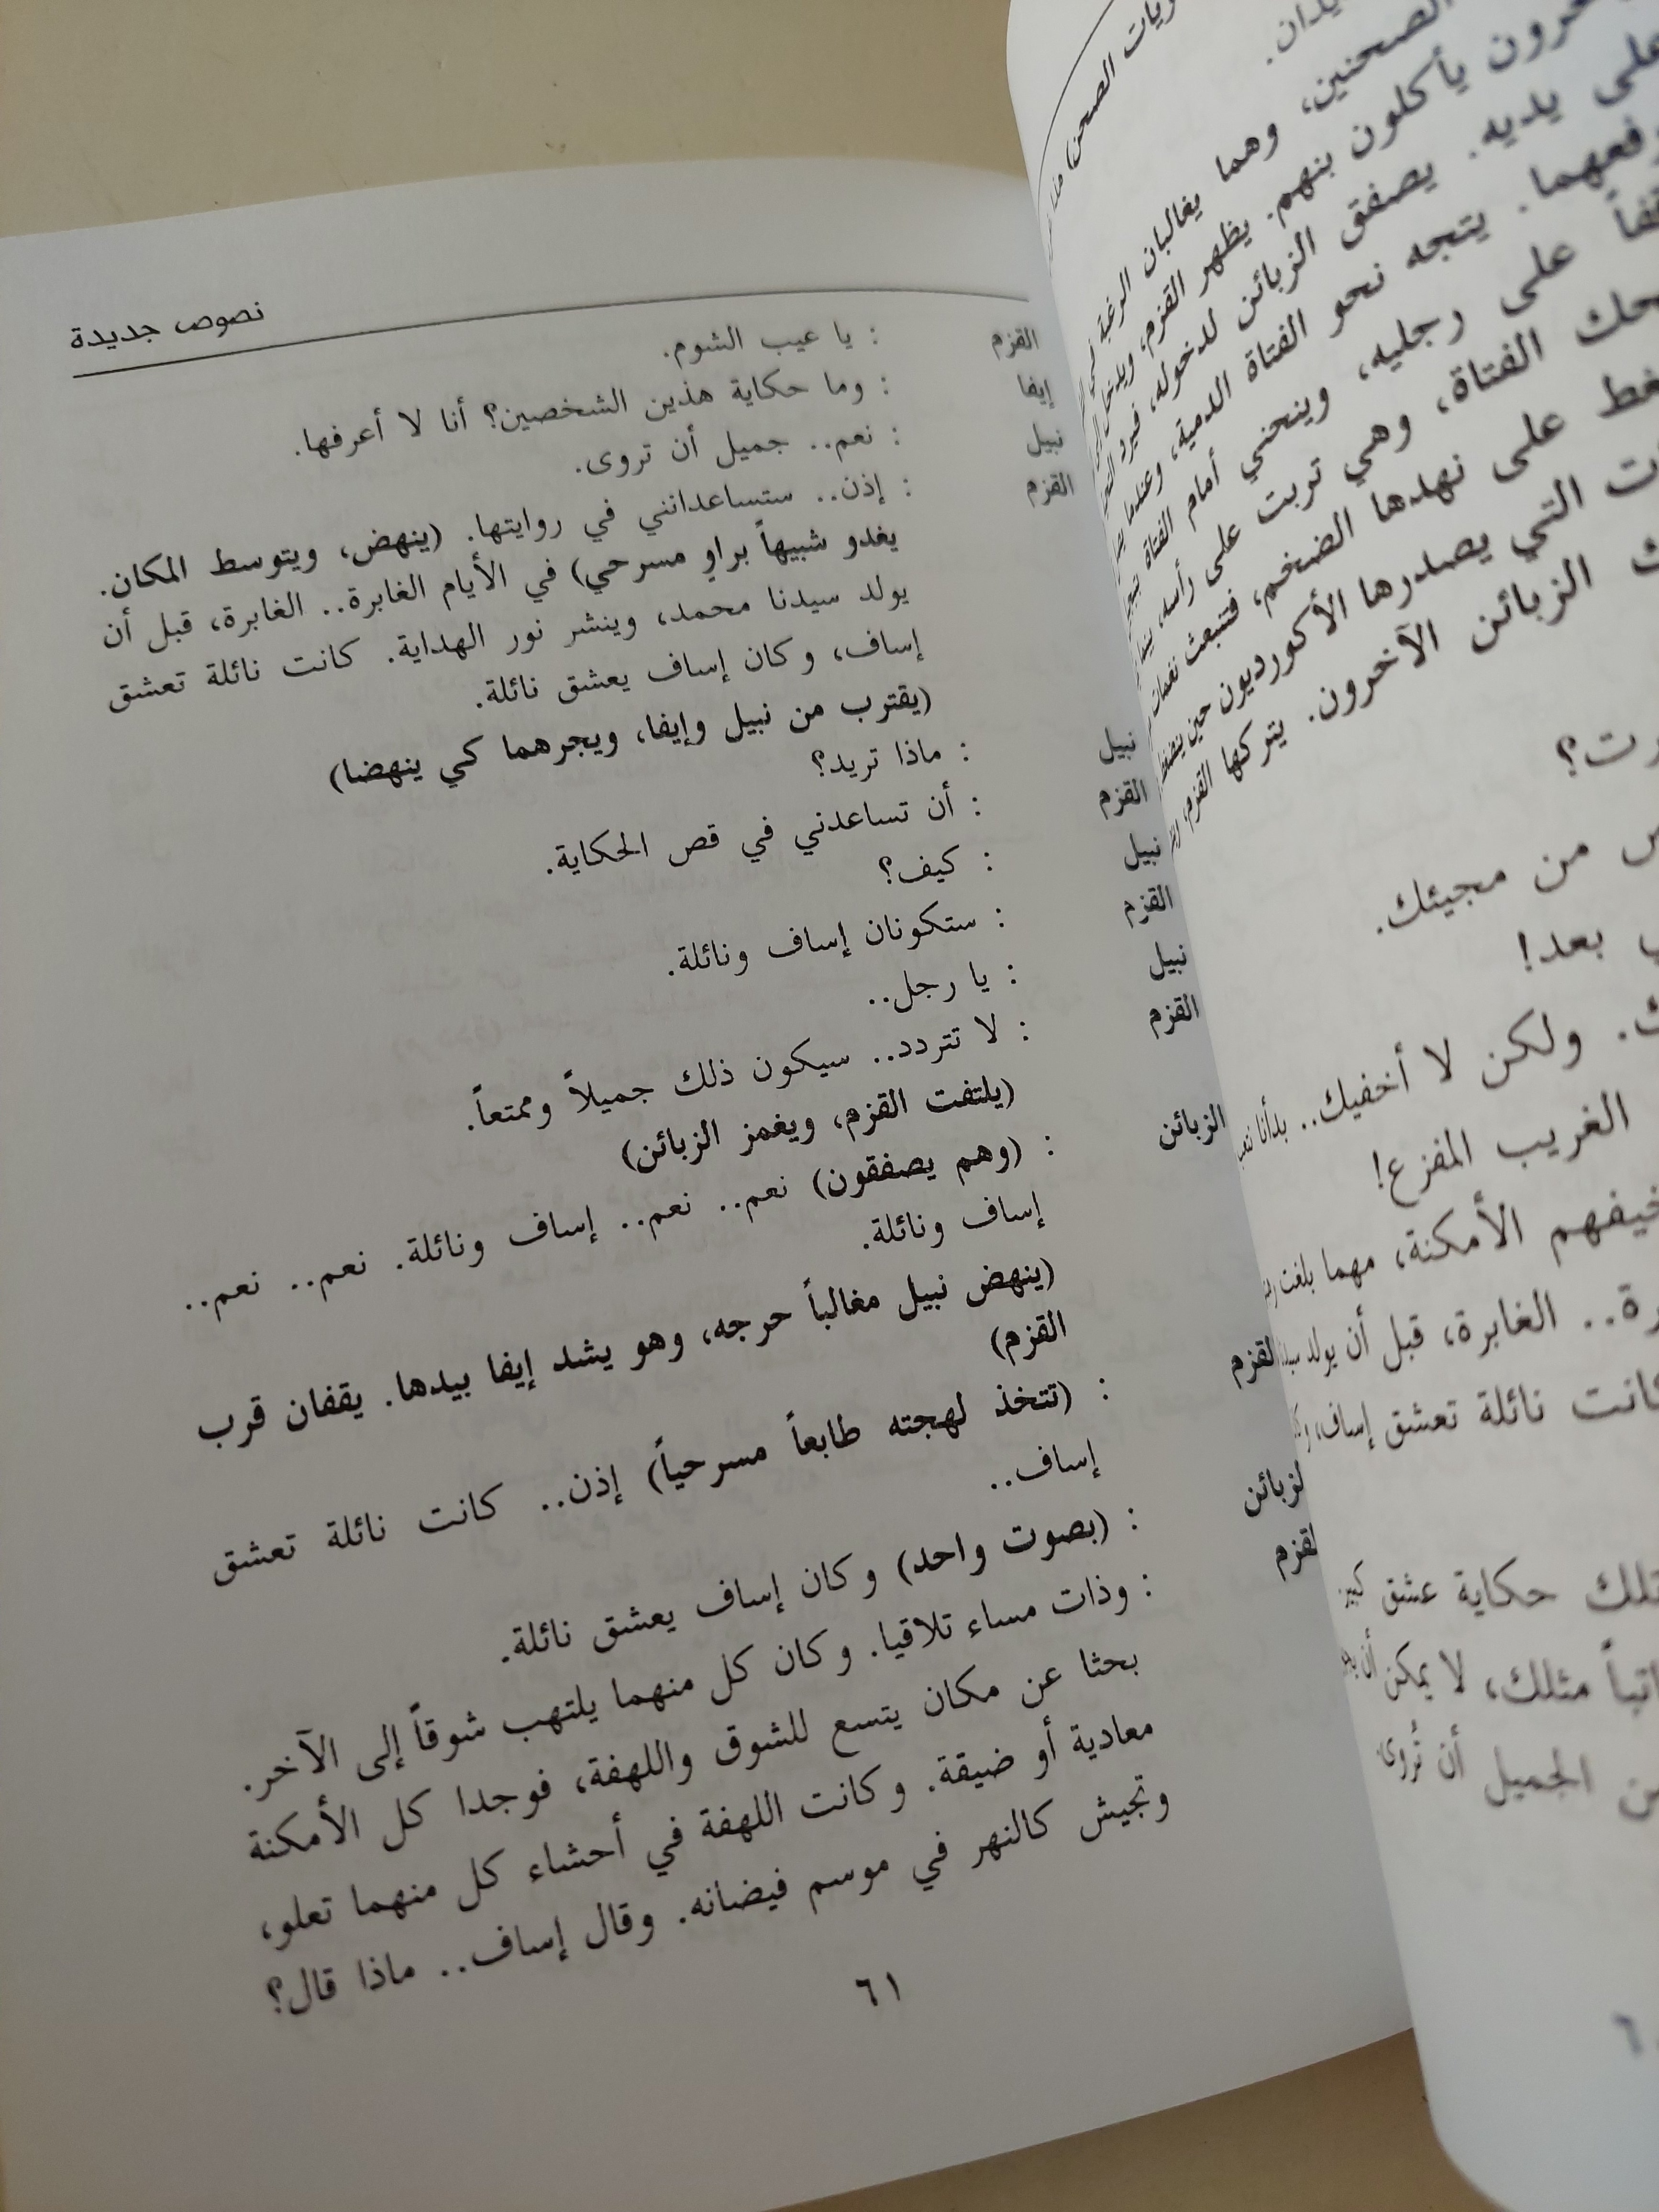 نصوص جديدة
القزم : يا عيب الشوم.
إيفا : وما حكاية هذين الشخصين؟ أنا لا أعرفها.
نبيل : نعم.. جميل أن تروى.
القزم : إذن.. ستساعدانني في روايتها. (ينهض، ويتوسط المكان.
يغدو شبيهاً براوٍ مسرحي) في الأيام الغابرة.. الغابرة، قبل أن
يولد سيدنا محمد، وينشر نور الهداية. كانت نائلة تعشق
إساف، وكان إساف يعشق نائلة.
(يقترب من نبيل وإيفا، ويجرهما كي ينهضا)
نبيل : ماذا تريد؟
القزم : أن تساعدني في قص الحكاية.
نبيل : كيف؟
القزم : ستكونان إساف ونائلة.
نبيل : يا رجل..
القزم : لا تتردد.. سيكون ذلك جميلاً وممتعاً.
(يلتفت القزم، ويغمز الزبائن)
الزبائن : (وهم يصفقون) نعم.. نعم.. إساف ونائلة. نعم.. نعم..
إساف ونائلة.
(ينهض نبيل مغالباً حرجه، وهو يشد إيفا بيدها. يقفان قرب
القزم)
القزم : (تتخذ لهجته طابعاً مسرحياً) إذن.. كانت نائلة تعشق
إساف..
الزبائن : (بصوت واحد) وكان إساف يعشق نائلة.
القزم : وذات مساء تلاقيا. وكان كل منهما يلتهب شوقاً إلى الآخر.
بحثا عن مكان يتسع للشوق واللهفة، فوجدا كل الأمكنة
معادية أو ضيقة. وكانت اللهفة في أحشاء كل منهما تعلو،
وتجيش كالنهر في موسم فيضانه. وقال إساف.. ماذا قال؟
٦١
الصحنين، وهما يغالبان الرغبة في
يأكلون بنهم. يظهر القزم، ويدخل
على يديه. يصفق الزبائن لدخوله، فيرد
يتجه نحو الفتاة الدمية، وعندما
على رجليه، وينحني أمام الفتاة
الفتاة، وهي تربت على رأسه،
على نهدها الضخم، فتنبعث نغمات
التي يصدرها الأكورديون حين
الزبائن الآخرون. يتركها القزم،
من مجيئك.
بعد!
ولكن لا أخفيك.. بدأنا
الغريب المفزع!
الأمكنة، مهما بلغت
الغابرة، قبل أن يولد سيدنا
كانت نائلة تعشق إساف،
تلك حكاية عشق
مثلك، لا يمكن أن
الجميل أن تُروى